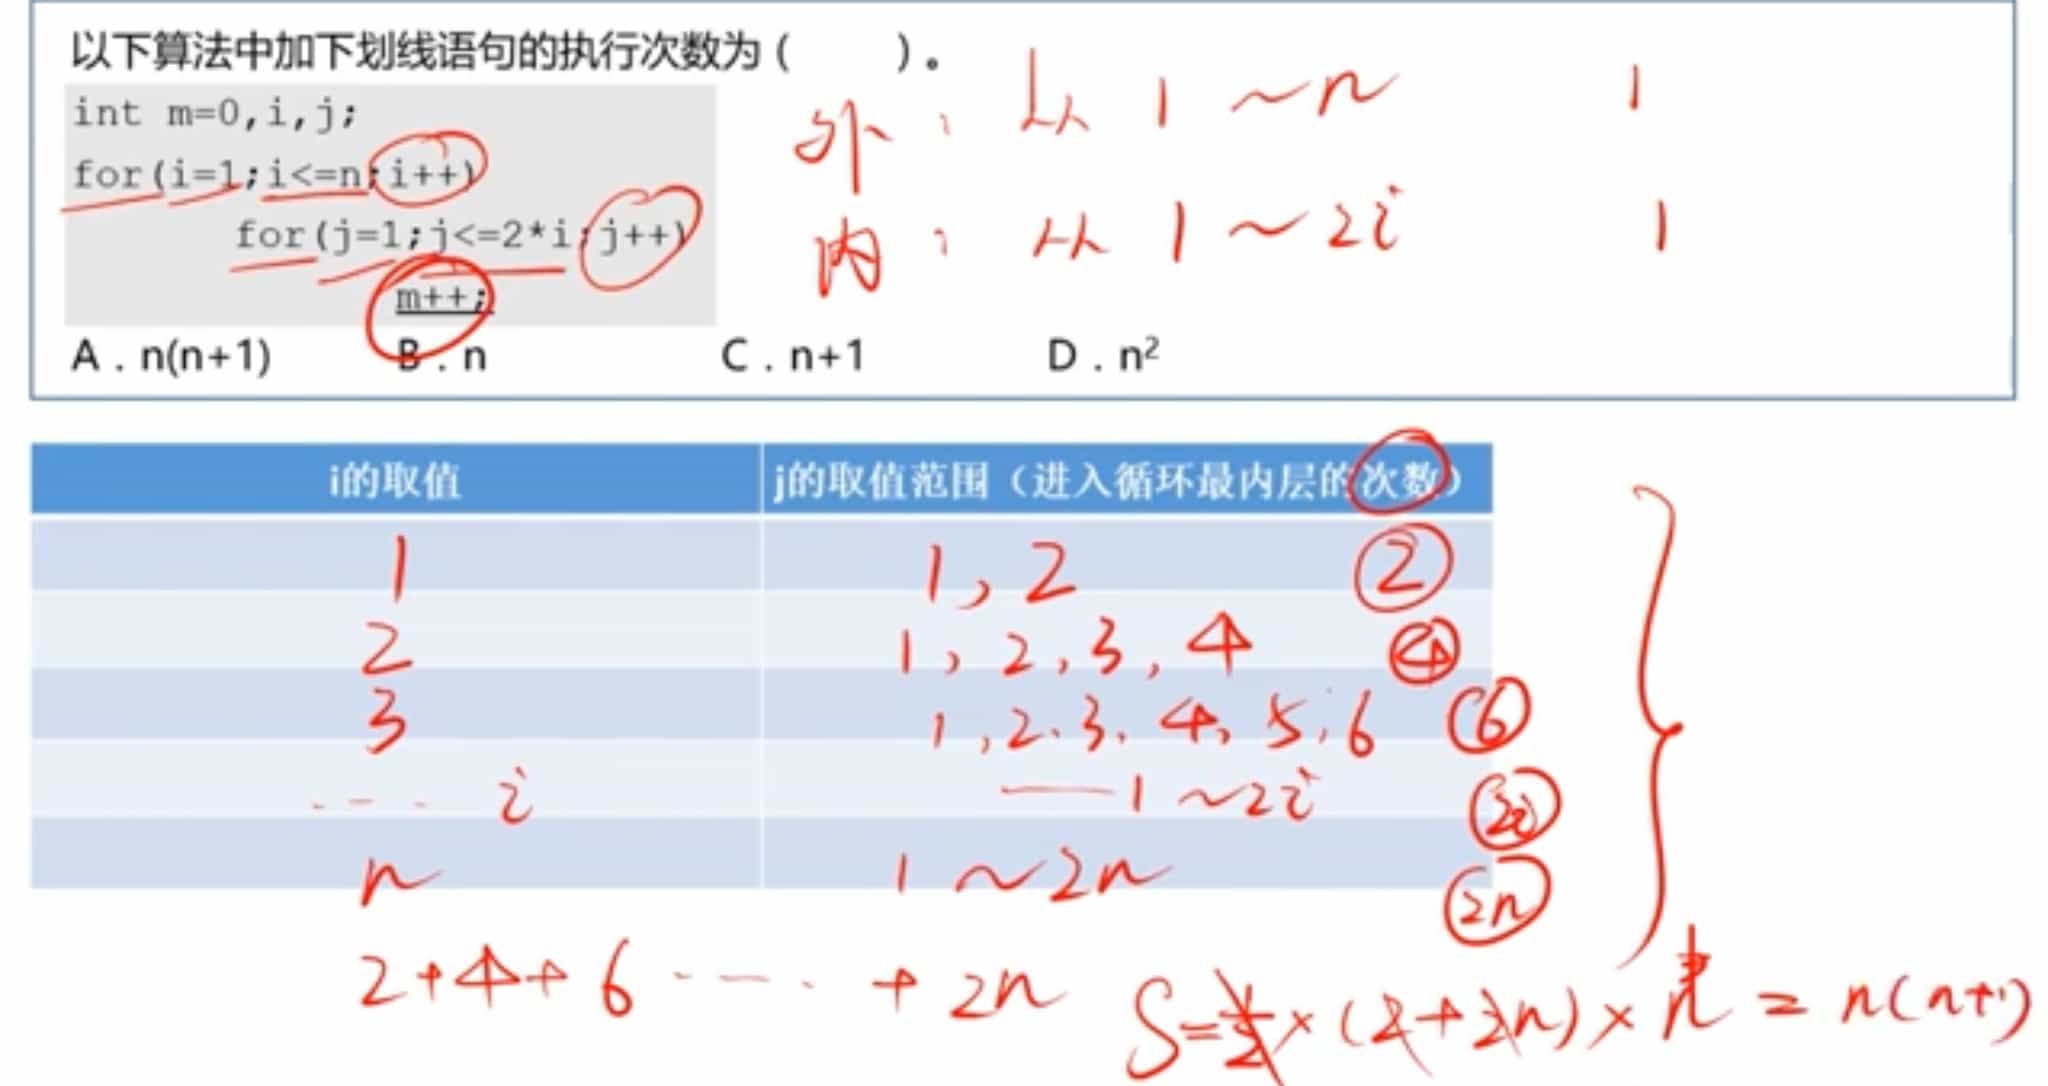 以下算法中加下划线语句的执行次数为（　　）。
int m=0,i,j;
for(i=1;i<=n;i++)
for(j=1;j<=2*i;j++)
m++;
A．n(n+1) B．n C．n+1 D．n²
外：从 1 ～ n 1
内：从 1 ～ 2i 1
i的取值 j的取值范围（进入循环最内层的次数）
1 1, 2 2
2 1, 2, 3, 4 4
3 1, 2, 3, 4, 5, 6 6
... i —1 ～ 2i 2i
n 1 ～ 2n 2n
2+4+6 ... + 2n
S=½×(2+2n)×n = n(n+1)